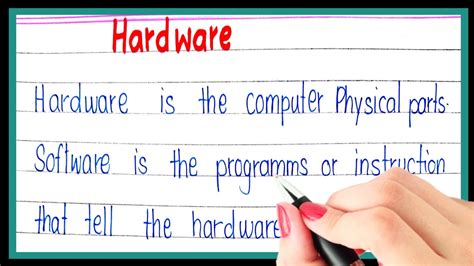 Hardware
Hardware is the computer Physical parts.
Software is the programms or instruction
that tell the hardware